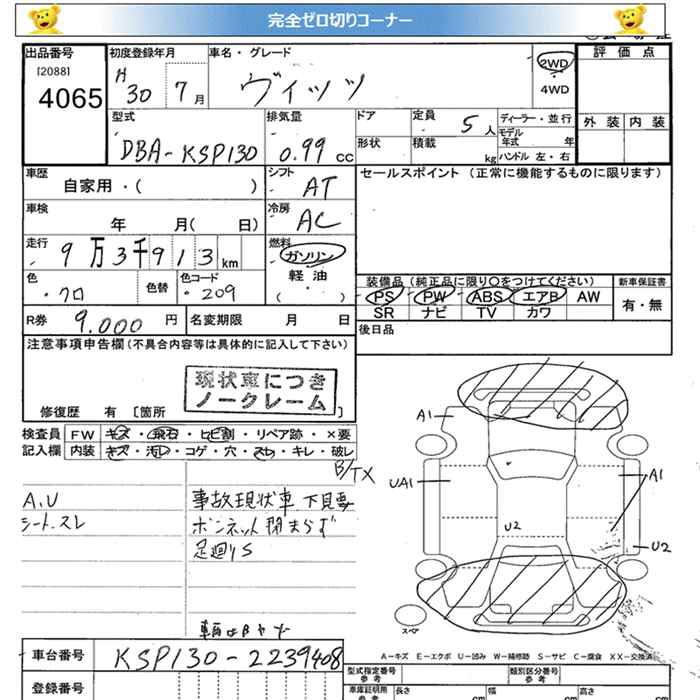 完全ゼロ切りコーナー
出品番号 初度登録年月 車名・グレード 2WD 評価点
[2088] H 30 7月 ヴィッツ 4WD
4065
型式 排気量 ドア 定員 5人 ディーラー・並行 外装 内装
モデル年式 年
DBA-KSP130 0.99cc 形状 積載 kg ハンドル 左・右
車歴 シフト セールスポイント (正常に機能するものに限ります)
自家用・( ) AT
車検 冷房
年 月( 日) AC
走行 燃料
9万3千913km ガソリン
軽油
色 色替 色コード ( ・ ) 装備品 (純正品に限り〇をつけてください) 新車保証書
・クロ ・209 PS PW ABS エアB AW 有・無
SR ナビ TV カワ
R券 9.000円 名変期限 月 日 後日品
注意事項申告欄(不具合内容等は具体的に記入して下さい)
現状車につき
ノークレーム
修復歴 有 [箇所 ]
検査員 FW キズ・飛石・ヒビ割・リペア跡・×要
記入欄 内装 キズ・汚レ・コゲ・穴・スレ・キレ・破レ
A1
B/TX
UA1 A1
A.U 事故現状車 下見要
シートスレ ボンネット閉まらず
U2
足廻りS U2
スペア
A-キズ E-エクボ U-凹み W-補修跡 S-サビ C-腐食 XX-交換済
車台番号 KSP130-2239408
型式指定番号 参考 類別区分番号 参考
登録番号 車庫証明用 参考 長さ cm 幅 cm 高さ cm